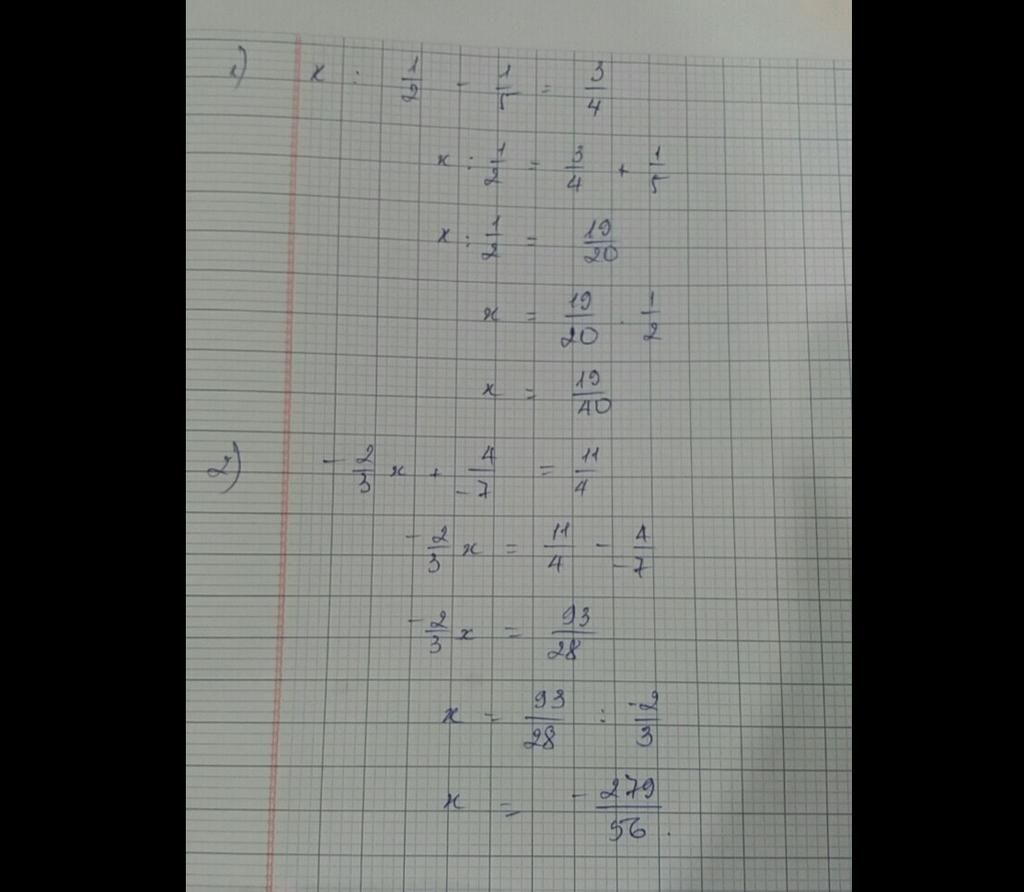 1) x : 1/2 - 1/5 = 3/4
x : 1/2 = 3/4 + 1/5
x : 1/2 = 19/20
x = 19/20 . 1/2
x = 19/40
2) -2/3 x + 4/-7 = 11/4
-2/3 x = 11/4 - 4/-7
-2/3 x = 93/28
x = 93/28 : -2/3
x = - 279/56.